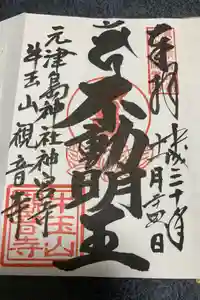 奉拝
平成三十年
十月十四日
不動明王
元津島神社神宮寺
牛玉山観音寺
牛玉山
観音寺